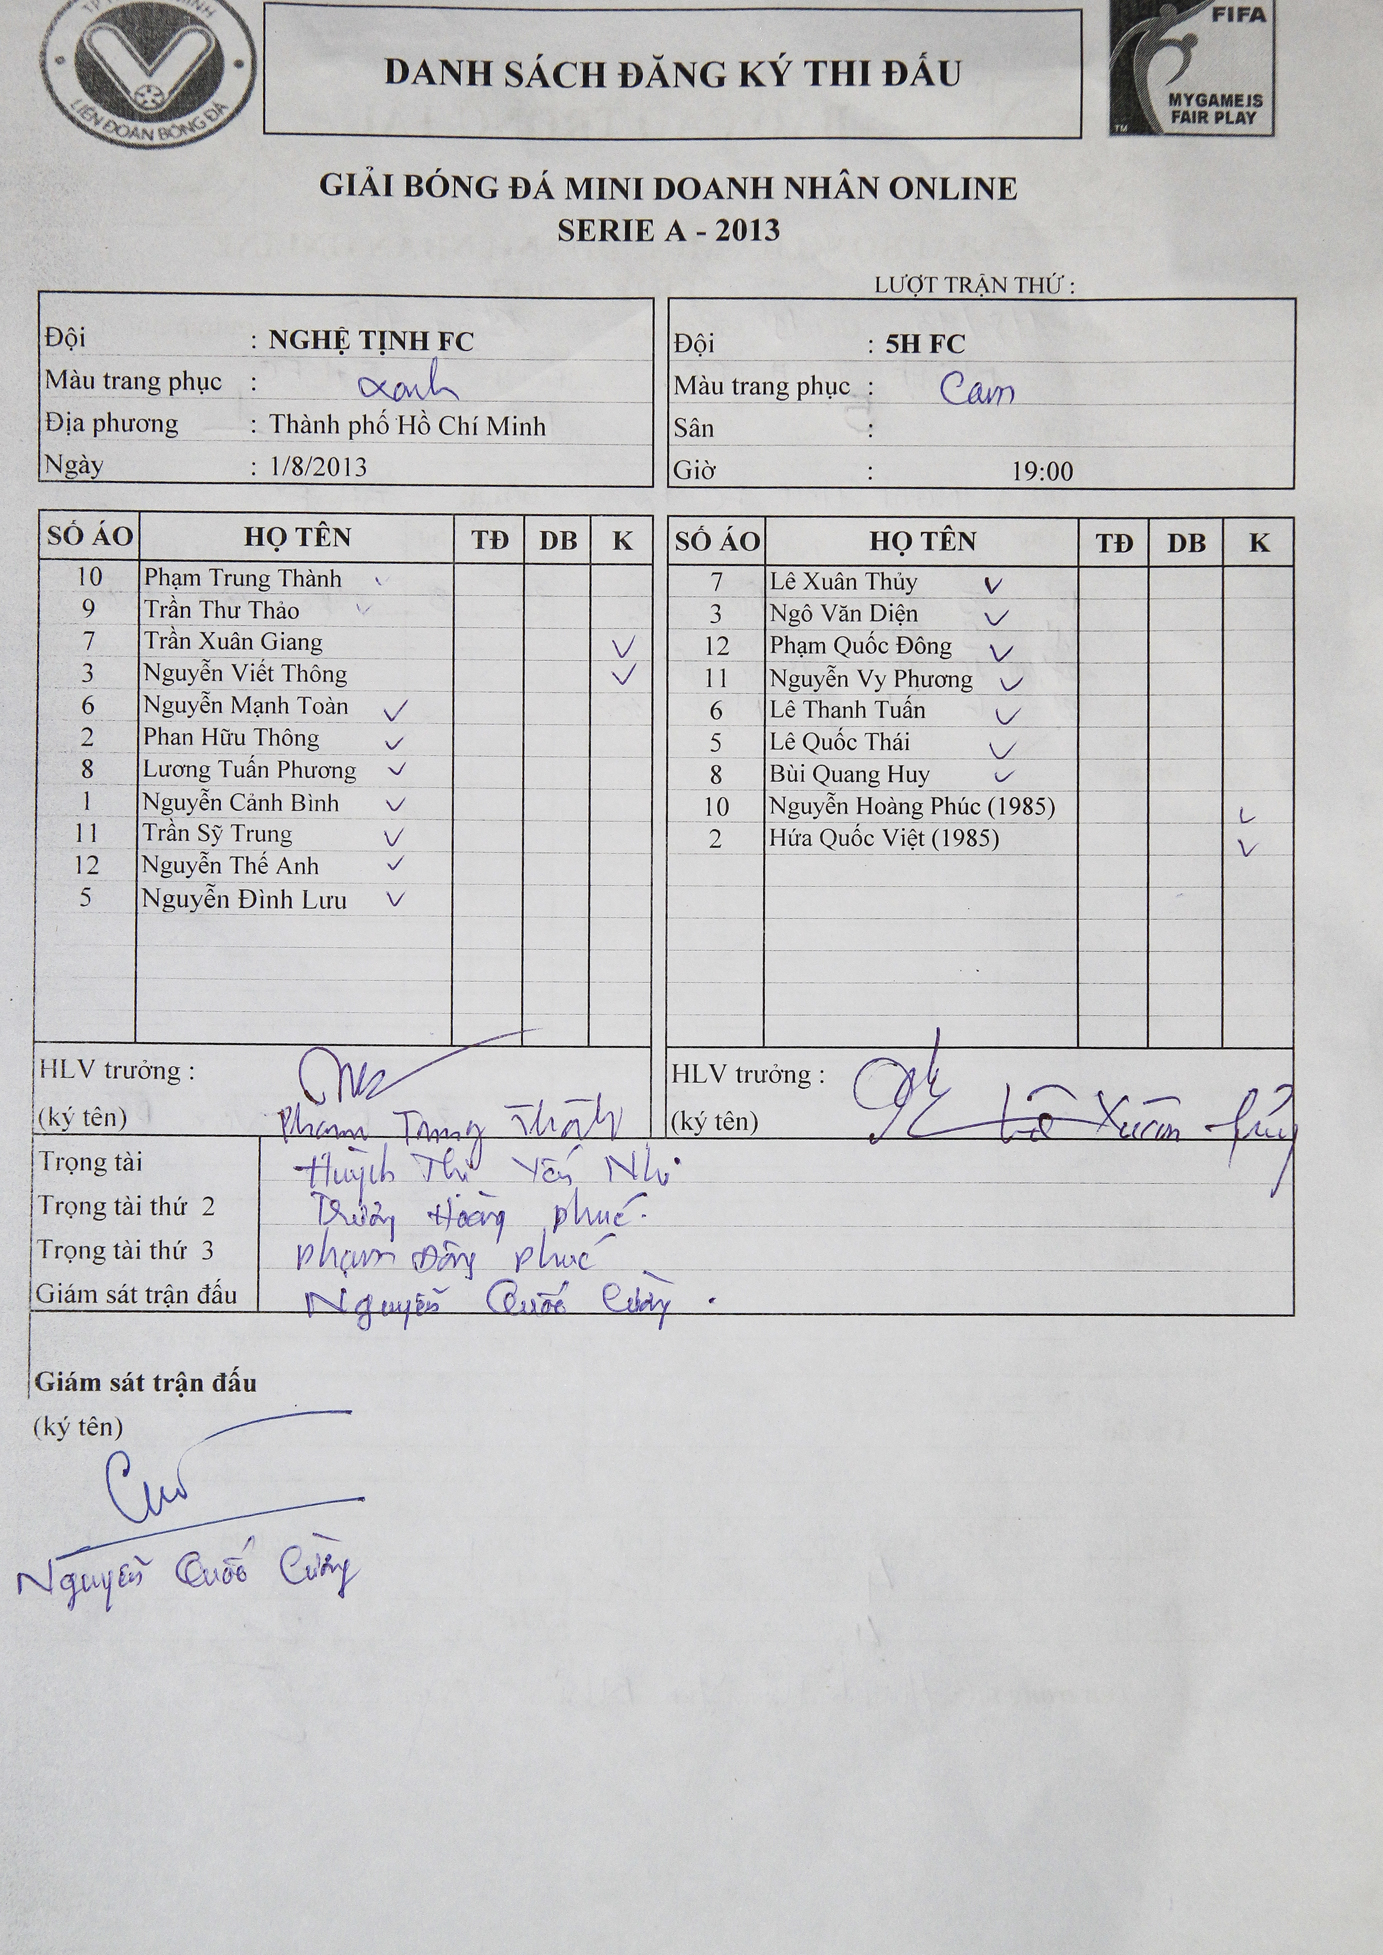 MINH
LIÊN ĐOÀN BÓNG ĐÁ
DANH SÁCH ĐĂNG KÝ THI ĐẤU
FIFA
MY GAME IS
FAIR PLAY
TM
GIẢI BÓNG ĐÁ MINI DOANH NHÂN ONLINE
SERIE A - 2013
LƯỢT TRẬN THỨ :
Đội : NGHỆ TỊNH FC
Màu trang phục : xanh
Địa phương : Thành phố Hồ Chí Minh
Ngày : 1/8/2013
Đội : 5H FC
Màu trang phục : Cam
Sân :
Giờ : 19:00
SỐ ÁO HỌ TÊN TĐ DB K
10 Phạm Trung Thành ✓
9 Trần Thư Thảo ✓
7 Trần Xuân Giang ✓
3 Nguyễn Viết Thông ✓
6 Nguyễn Mạnh Toàn ✓
2 Phan Hữu Thông ✓
8 Lương Tuấn Phương ✓
1 Nguyễn Cảnh Bình ✓
11 Trần Sỹ Trung ✓
12 Nguyễn Thế Anh ✓
5 Nguyễn Đình Lưu ✓
HLV trưởng :
(ký tên) Phạm Trung Thành
SỐ ÁO HỌ TÊN TĐ DB K
7 Lê Xuân Thủy ✓
3 Ngô Văn Diện ✓
12 Phạm Quốc Đông ✓
11 Nguyễn Vy Phương ✓
6 Lê Thanh Tuấn ✓
5 Lê Quốc Thái ✓
8 Bùi Quang Huy ✓
10 Nguyễn Hoàng Phúc (1985) ✓
2 Hứa Quốc Việt (1985) ✓
HLV trưởng :
(ký tên) Lê Xuân Thủy
Trọng tài Huỳnh Thị Yến Nhi
Trọng tài thứ 2 Trương Hoàng Phúc.
Trọng tài thứ 3 Phạm Đông Phúc
Giám sát trận đấu Nguyễn Quốc Cường.
Giám sát trận đấu
(ký tên)
Nguyễn Quốc Cường